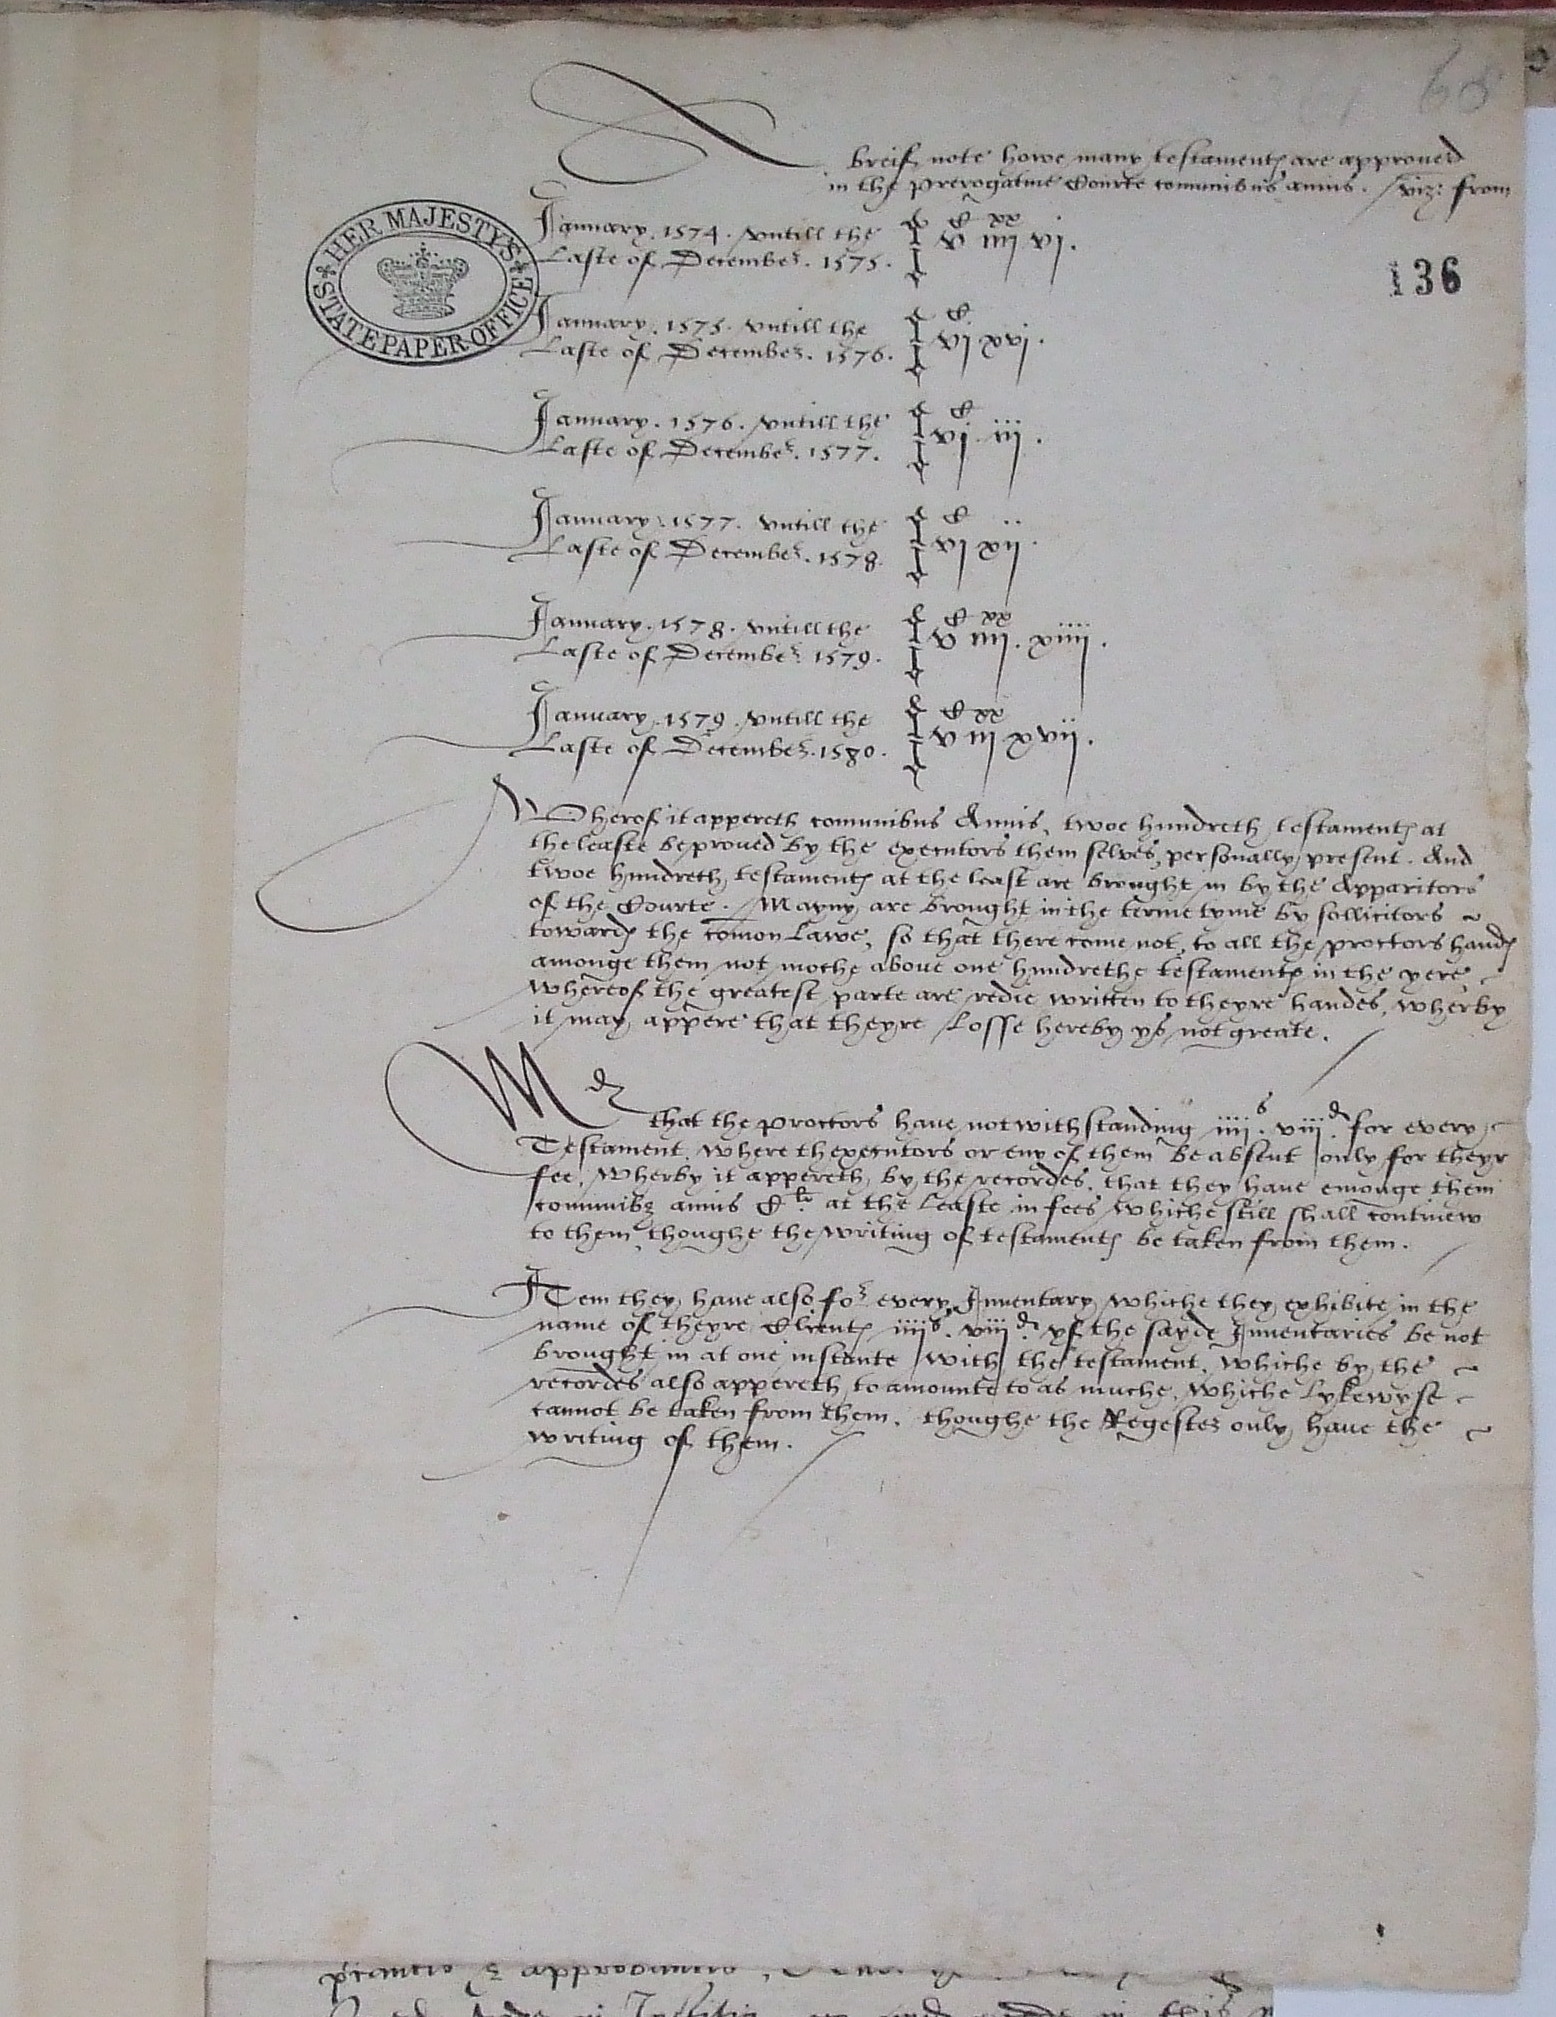 68
A breif note howe many testamentꝭ are approued
in the Prerogatiue Courte comunibus annis. viz: from
HER MAJESTY'S
STATE PAPER OFFICE
136
January. 1574. vntill the
Laste of December. 1575.
C xx
v iiij vj.
January. 1575. vntill the
Laste of December. 1576.
C
vj xvj.
January. 1576. vntill the
Laste of December. 1577.
C
vj iij.
January. 1577. vntill the
Laste of December. 1578.
C
vj xij.
January. 1578. vntill the
Laste of December. 1579.
C xx
v iiij. xiiij.
January. 1579. vntill the
Laste of December. 1580.
C xx
v iij xvij.
Wherof it appereth comunibus Annis, twoe hundreth testamentꝭ at
the leaste be proued by the executors them selves, personally present. And
twoe hundreth testamentꝭ at the least are brought in by the Apparitors
of the Courte. Mayny are brought in the terme tyme by sollicitors
towardꝭ the comon Lawe, so that there come not, to all the proctors handꝭ
amonge them not moche aboue one hundrethe testamentꝭ in the yere
whereof the greatest parte are redie written to theyre handes, wherby
it may appere that theyre Losse hereby ys not greate.
Md
that the Proctors haue notwithstanding iiijs. viijd. for every
Testament, where thexecutors or eny of them be absent only for theyr
fee, Wherby it appereth by the recordes, that they haue emonge them
communibꝫ annis Cli at the Leaste in fees whiche still shall continew
to them thoughe the writing of testamentꝭ be taken from them.
Item they haue also for every Inuentary whiche they exhibite in the
name of theyre Clientꝭ iiijs. viijd. yf the sayde Inuentaries be not
brought in at one instante with the testament, whiche by the
recordes also appereth to amounte to as muche, whiche Lykewyse
cannot be taken from them, thoughe the Regester only haue the
writing of them.